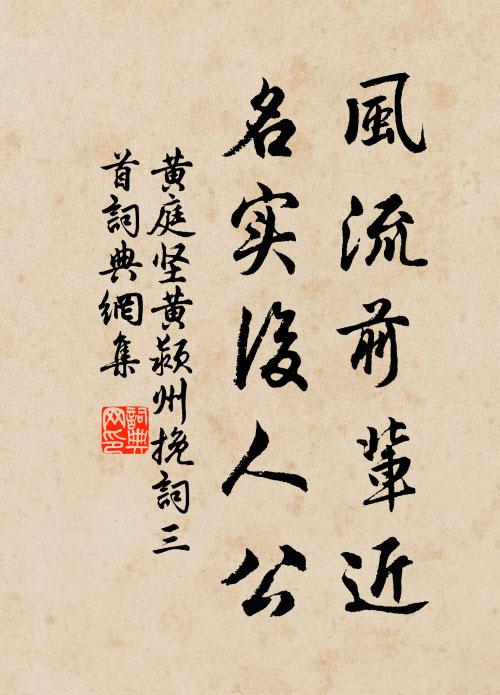 風流前輩近
名实後人公
黄庭坚黄颍州挽詞三
首詞典網集
詞典网印